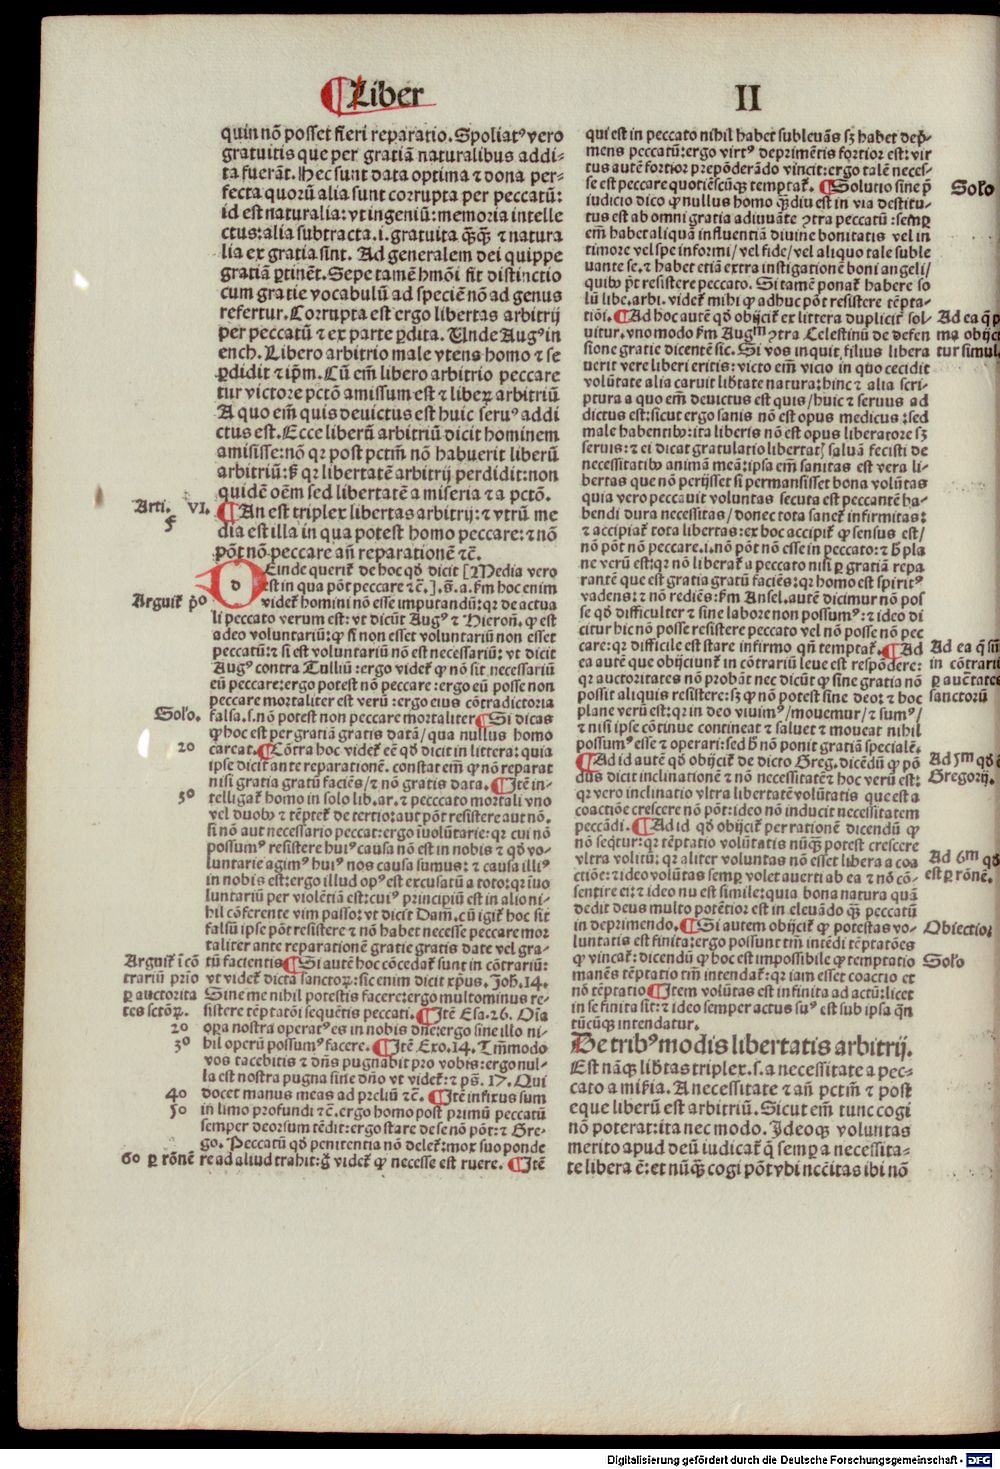 ¶Liber
II
quin nõ posset fieri reparatio. Spoliatꝰ vero
gratuitis que per gratiã naturalibus addi-
ta fuerãt. Hec sunt data optima ⁊ dona per-
fecta quorũ alia sunt corrupta per peccatũ:
id est naturalia: vt ingeniũ: memoria intelle
ctus: alia subtracta .i. gratuita q̃q̃ ⁊ natura
lia ex gratia sint. Ad generalem dei quippe
gratiã ꝑtinẽt. Sepe tamẽ hmõi fit distinctio
cum gratie vocabulũ ad speciẽ nõ ad genus
refertur. Corrupta est ergo libertas arbitrij
per peccatũ ⁊ ex parte ꝑdita. Unde Augꝰ in
ench. Libero arbitrio male vtens homo ⁊ se
ꝑdidit ⁊ ip̃m. Cũ em̃ libero arbitrio peccare
tur victore pctõ amissum est ⁊ liberꝝ arbitriũ
A quo em̃ quis deuictus est huic seruꝰ addi
ctus est. Ecce liberũ arbitriũ dicit hominem
amisisse: nõ qꝛ post pctm̃ nõ habuerit liberũ
arbitriũ: ß qꝛ libertatẽ arbitrij perdidit: non
quidẽ oẽm sed libertatẽ a miseria ⁊ a pctõ.
Arti. VI.
¶An est triplex libertas arbitrij: ⁊ vtrũ me
dia est illa in qua potest homo peccare: ⁊ nõ
põt nõ peccare añ reparationẽ ⁊c̃.
d
Einde querit̃ de hoc qđ dicit [Media vero
est in qua põt peccare ⁊c̃.]. s̃. a. s̃m hoc enim
Arguit̃ p̃º
videt̃ homini nõ esse imputandũ: qꝛ de actua
li peccato verum est: vt dicũt Augꝰ ⁊ Hieroñ. ꝙ est
adeo voluntariũ: ꝙ si non esset voluntariũ non esset
peccatũ: ⁊ si est voluntariũ nõ est necessariũ: vt dicit
Augꝰ contra Tulliũ: ergo videt̃ ꝙ nõ sit necessariũ
eũ peccare: ergo potest nõ peccare: ergo eũ posse non
peccare mortaliter est verũ: ergo eius cõtradictoria
Solo.
falsa. s. nõ potest non peccare mortaliter ¶Si dicas
ꝙ hoc est per gratiã gratis datã / qua nullus homo
20
careat. ¶Cõtra hoc videt̃ eẽ qđ dicit in littera: quia
ipse dicit ante reparationẽ. constat em̃ ꝙ nõ reparat
nisi gratia gratũ faciẽs / ⁊ nõ gratis data. ¶Itẽ in-
30
telligat̃ homo in solo lib. ar. ⁊ pecccato mortali vno
vel duobꝰ ⁊ tẽptet̃ de tertio: aut põt resistere aut nõ.
si nõ aut necessario peccat: ergo iuolũtarie: qꝛ cui nõ
possumꝰ resistere huiꝰ causa nõ est in nobis ⁊ qđ vo-
luntarie agimꝰ huiꝰ nos causa sumus: ⁊ causa illiꝰ
in nobis est: ergo illud opꝰ est excusatũ a toto: qꝛ iuo
luntariũ per violẽtiã est: cuiꝰ principiũ est in alio ni-
hil cõferente vim passo: vt dicit Dam̃. cũ igit̃ hoc sit
falsũ ipse põt resistere ⁊ nõ habet necesse peccare mor
taliter ante reparationẽ gratie gratis date vel gra-
Arguit̃ ĩ cõ
trariũ prĩo
ꝑ auctorita
tes sctõꝝ.
tũ facientis ¶Si autẽ hoc cõcedat̃ sunt in cõtrariũ:
vt videt̃ dicta sanctoꝝ: sic enim dicit xp̃us. Joh. 14.
Sine me nihil potestis facere: ergo multominus re-
sistere tẽptatõi sequẽtis peccati. ¶Itẽ Esa. 26. Oĩa
20
oꝑa nostra operatꝰ es in nobis dñe: ergo sine illo ni-
30
hil operũ possumꝰ facere. ¶Itẽ Exo. 14. Tm̃modo
vos tacebitis ⁊ dñs pugnabit pro vobis: ergo nul-
la est nostra pugna sine dño vt videt̃: ⁊ pš. 17. Qui
40
docet manus meas ad preliũ ⁊c̃. ¶Itẽ infixus sum
50
in limo profundi ⁊c̃. ergo homo post primũ peccatũ
semper deorsum tẽdit: ergo stare de se nõ põt: ⁊ Gre-
go. Peccatũ qđ penitentia nõ delet̃: mox suo ponde
60 ꝑ rõnẽ
re ad aliud trahit: ğ videt̃ ꝙ necesse est ruere. ¶Itẽ
qui est in peccato nihil habet subleuãs sꝫ habet dep̃-
mens peccatũ: ergo virtꝰ deprimẽtis fortior est: vir
tus autẽ fortior prepõderãdo vincit: ergo talẽ neces-
se est peccare quotiẽscũqꝫ temptat̃. ¶Solutio sine p̃
Solo
iudicio dico ꝙ nullus homo q̃diu est in via destitu-
tus est ab omni gratia adiuuãte ꝯtra peccatũ: semꝑ
em̃ habet aliquã influentiã diuine bonitatis vel in
timore vel spe informi / vel fide / vel aliquo tale suble
uante se. ⁊ habet etiã extra instigationẽ boni angeli /
quibꝰ p̃t resistere peccato. Si tamẽ ponat̃ habere so
lũ libe. arbi. videt̃ mihi ꝙ adhuc põt resistere tẽpta-
tiõi. ¶Ad hoc autẽ qđ obijcit̃ ex littera duplicit̃ sol-
Ad ea q̃ p̃
mo obijci
tur simul
uitur. vno modo s̃m Augᵐ ꝯtra Celestinũ de defen
sione gratie dicentẽ sic. Si vos inquit filius libera
uerit vere liberi eritis: victo em̃ vicio in quo cecidit
volũtate alia caruit lib̃tate natura: hinc ⁊ alia scri-
ptura a quo em̃ deuictus est quis / huic ⁊ seruus ad
dictus est: sicut ergo sanis nõ est opus medicus: sed
male habentibꝰ: ita liberis nõ est opus liberatore sꝫ
seruis: ⁊ ei dicat gratulatio libertatꝭ saluã fecisti de
necessitatibꝰ animã meã: ipsa em̃ sanitas est vera li-
bertas que nõ perijsset si permansisset bona volũtas
quia vero peccauit voluntas secuta est peccantẽ ha-
bendi dura necessitas / donec tota sanet̃ infirmitas:
⁊ accipiat̃ tota libertas: ex hoc accipit̃ ꝙ sensus est /
nõ põt nõ peccare .i. nõ põt nõ esse in peccato: ⁊ h̃ pla
ne verũ est: qꝛ nõ liberat̃ a peccato nisi ꝑ gratiã repa
rantẽ que est gratia gratũ faciẽs: qꝛ homo est spiritꝰ
vadens: ⁊ nõ rediẽs: s̃m Ansel. autẽ dicimur nõ pos
se qđ difficulter ⁊ sine labore non possumꝰ: ⁊ ideo di
citur hic nõ posse resistere peccato vel nõ posse nõ pec
care: qꝛ difficile est stare infirmo qñ temptat̃. ¶Ad
Ad ea q̃ sũt
in cõtrariũ
ꝑ auctates
sanctorũ
ea autẽ que obijciunt̃ in cõtrariũ leue est respõdere:
qꝛ auctoritates nõ probãt nec dicũt ꝙ sine gratia nõ
possit aliquis resistere: sꝫ ꝙ nõ potest sine deo: ⁊ hoc
plane verũ est: qꝛ in deo viuimꝰ / mouemur / ⁊ sumꝰ /
⁊ nisi ipse cõtinue contineat ⁊ saluet ⁊ moueat nihil
possumꝰ esse ⁊ operari: sed h̃ nõ ponit gratiã specialẽ.
¶Ad id autẽ qđ obijcit̃ de dicto Greg. dicẽdũ ꝙ põ
Ad 5ᵐ qđ ẽ
Gregorij.
dus dicit inclinationẽ ⁊ nõ necessitatẽ ⁊ hoc verũ est:
qꝛ vero inclinatio vltra libertatẽ volũtatis que est a
coactiõe crescere nõ põt: ideo nõ inducit necessitatem
peccãdi. ¶Ad id qđ obijcit̃ per rationẽ dicendũ ꝙ
nõ seq̃tur: qꝛ tẽptatio volũtatis nũq̃ potest crescere
vltra volitũ: qꝛ aliter voluntas nõ esset libera a coa
Ad 6ᵐ qđ
est ꝑ rõnẽ.
ctiõe: ⁊ ideo volũtas semꝑ volet auerti ab ea ⁊ nõ cõ-
sentire ei: ⁊ ideo nũ est simile: quia bona natura quã
dedit deus multo potẽtior est in eleuãdo q̃ peccatũ
in deprimendo. ¶Si autem obijcit̃ ꝙ potestas vo-
Obiectio:
luntatis est finita: ergo possunt tm̃ intẽdi tẽptatões
ꝙ vincat̃: dicendũ ꝙ hoc est impossibile ꝙ temptatio
Solo
manẽs tẽptatio tm̃ intendat̃: qꝛ iam esset coactio et
nõ tẽptatio ¶Item volũtas est infinita ad actũ: licet
in se finita sit: ⁊ ideo semper actus suꝰ est sub ipsa q̃n
tũcũqꝫ intendatur.
De tribꝰ modis libertatis arbitrij.
Est nãqꝫ lib̃tas triplex. s. a necessitate a pec-
cato a miẽia. A necessitate ⁊ añ pctm̃ ⁊ post
eque liberũ est arbitriũ. Sicut em̃ tunc cogi
nõ poterat: ita nec modo. Ideoqꝫ voluntas
merito apud deũ iudicat̃ q̃ semꝑ a necessita-
te libera ẽ: et nũq̃ cogi põt vbi ncc̃itas ibi nõ
Digitalisierung gefördert durch die Deutsche Forschungsgemeinschaft - DFG